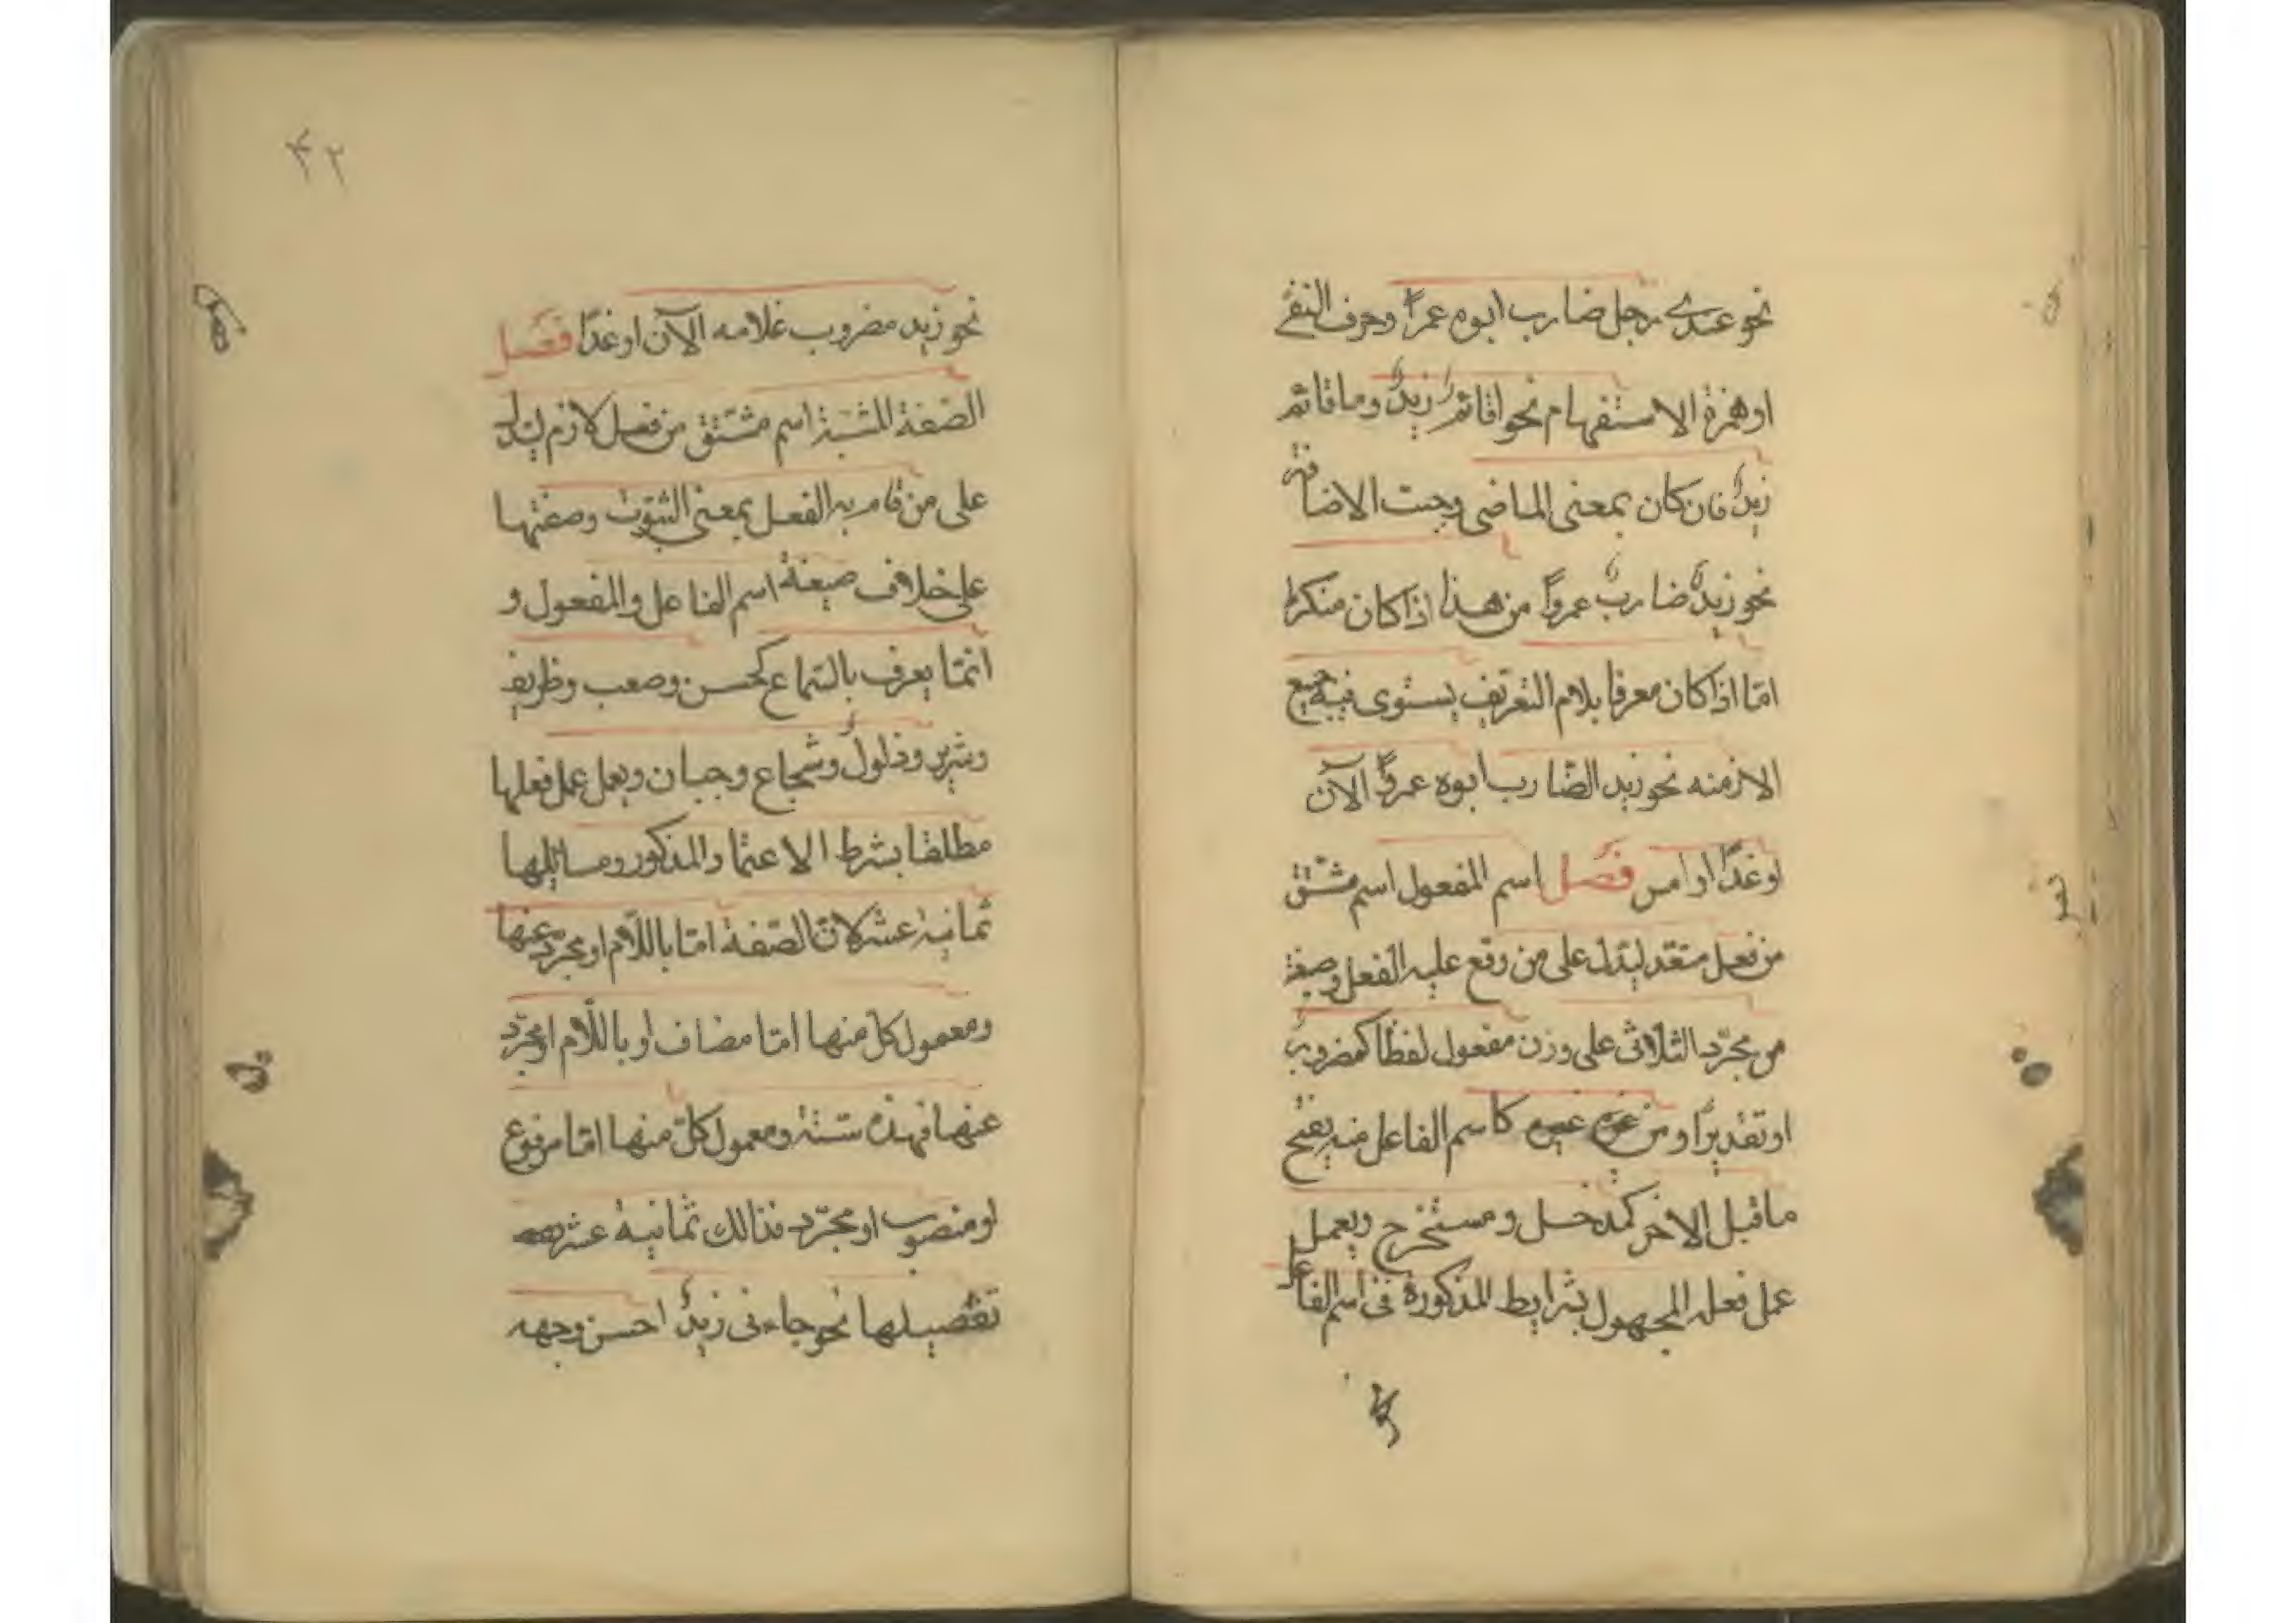 نحو عندى رجل ضارب ابوه عمرًا وحرف النفى
او همزة الاستفهام نحو اقائم زيدٌ وما قائم
زيدٌ فان كان بمعنى الماضى وجبت الاضافة
نحو زيدٌ ضاربٌ عمروًا من هذا اذا كان منكرا
امّا اذا كان معرفا بلام التعريف يستوى فيه جميع
الازمنه نحو زيد الضّارب ابوه عمروًا الآن
او غدًا او امس فصل اسم المفعول اسم مشتق
من فعل متعّد ليدّل على من وقع عليه الفعل وصيغة
من مجرّد الثلاثى على وزن مفعول لفظًا كمضروب
او تقديرًا ومن غيره كاسم الفاعل منه بفتح
ما قبل الاخر كمدخل ومستخرج ويعمل
عمل فعله المجهول بشرايط المذكورة فى اسم الفاعل
۴۲
نحو زيد مضروب غلامه الآن او غدًا فصل
الصّفة المشبّهة اسم مشتق من فعل لازم ليدل
على من قام به الفعل بمعنى الثبوت وصغتها
على خلاف صيغة اسم الفاعل والمفعول و
انمّا يعرف بالسّماع كحسن وصعب وظريف
وشريد وذلولٌ وشجاع وجبان ويعمل عمل فعلها
مطلقا بشرط الاعتماد المذكور ومسائلها
ثمانية عشر لان الصّفة امّا باللّام او مجرّد عنها
ومعمول كلّ منها امّا مضاف او باللّام او مجرّد
عنها فهذه ستّة ومعمول كلّ منها امّا مرفوع
او منصوب او مجرّد فذالك ثمانية عشر
تفصيلها نحو جاءنى زيدٌ احسن وجهه